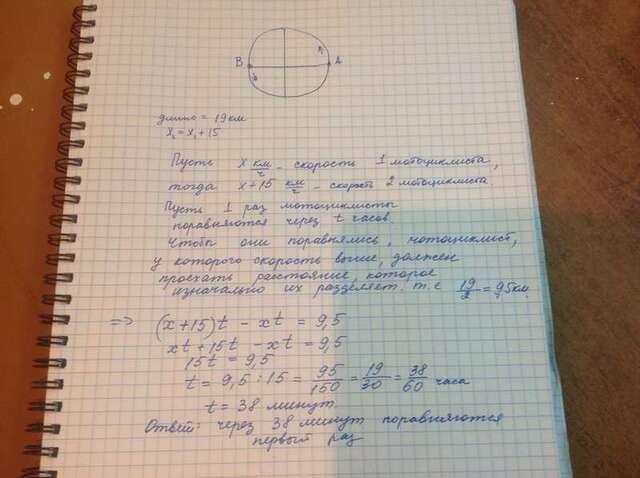 B A
длина = 19 км
X₂ = X₁ + 15
Пусть x км/ч - скорость 1 мотоциклиста,
тогда x+15 км/ч - скорость 2 мотоциклиста.
Пусть 1 раз мотоциклисты
поравняются через t часов.
Чтобы они поравнялись, мотоциклист,
у которого скорость выше, должен
проехать расстояние, которое
изначально их разделяет. т.е 19/2 = 9,5 км.
=> (x+15)t - xt = 9,5
xt + 15t - xt = 9,5
15t = 9,5
t = 9,5 : 15 = 95/150 = 19/30 = 38/60 часа
t = 38 минут.
Ответ: через 38 минут поравняются
первый раз